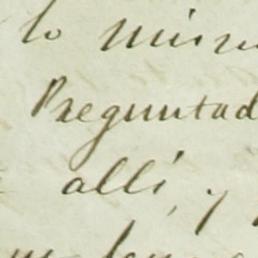 lo mism
Preguntad
allí, y